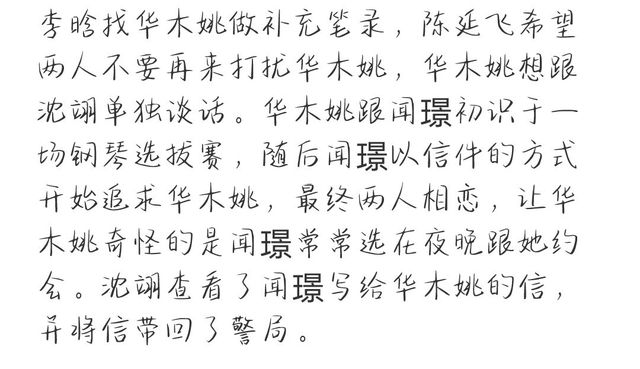 李晗找华木姚做补充笔录，陈延飞希望
两人不要再来打扰华木姚，华木姚想跟
沈翊单独谈话。华木姚跟闻璟初识于一
场钢琴选拔赛，随后闻璟以信件的方式
开始追求华木姚，最终两人相恋，让华
木姚奇怪的是闻璟常常选在夜晚跟她约
会。沈翊查看了闻璟写给华木姚的信，
并将信带回了警局。